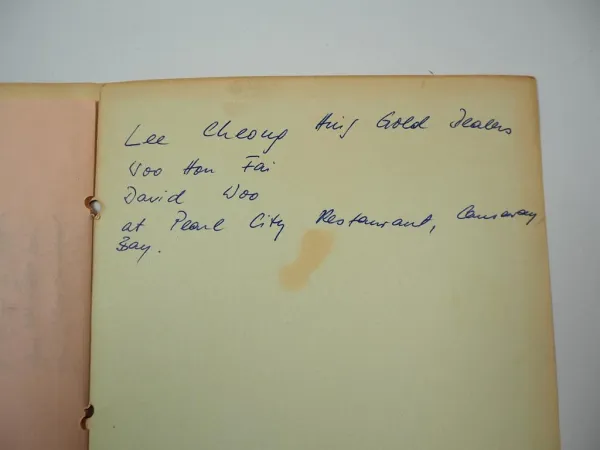 Lee Cheong Hing Gold Dealers
Woo Hon Fai
David Woo
at Pearl City Restaurant, Causeway
Bay.